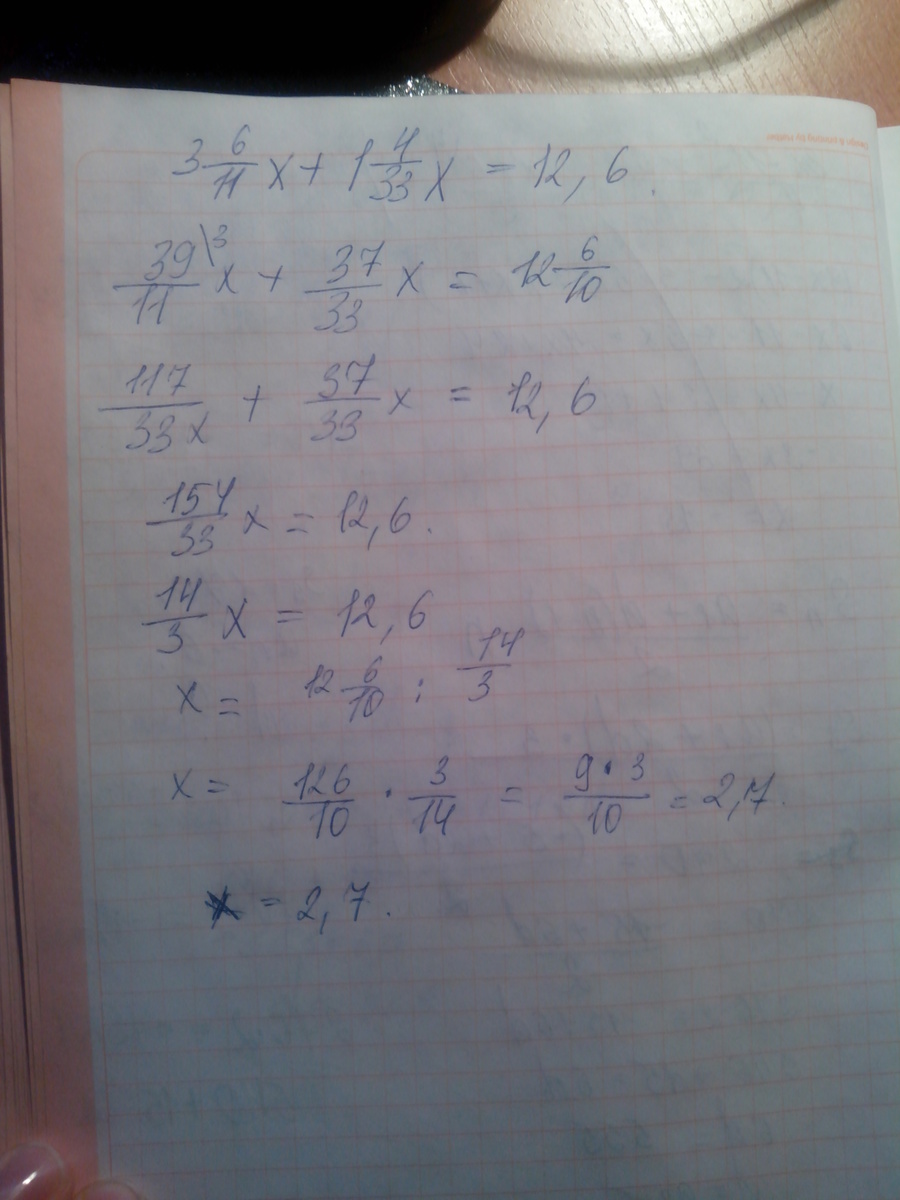 3 6/11 x + 1 4/33 x = 12,6.
39/11 \3 x + 37/33 x = 12 6/10
117/33x + 37/33 x = 12,6
154/33 x = 12,6.
14/3 x = 12,6
x = 12 6/10 : 14/3
x = 126/10 · 3/14 = 9·3/10 = 2,7.
x = 2,7.